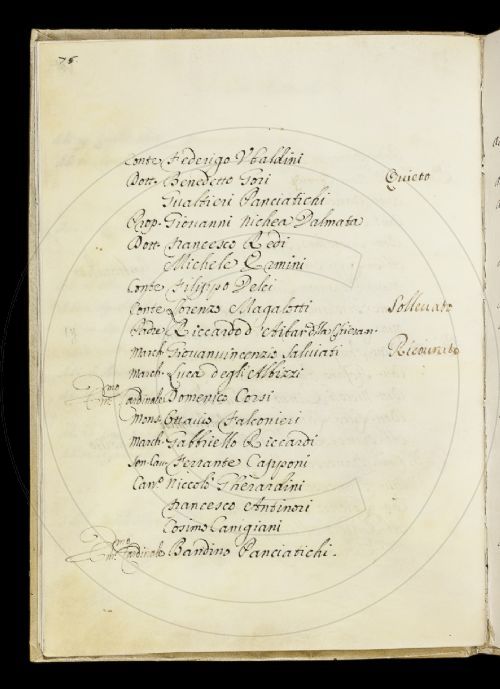 76.
Conte Federigo Ubaldini
Dott. Benedetto Gori Quieto
Gualtieri Panciatichi
Prop. Giovanni Nichea Dalmata
Dott. Francesco Redi
Michele Ermini
Conte Filippo Delci
Conte Lorenzo Magalotti Sollevato
Padre Riccardo
March. Giovanvincenzio Salviati Ricovrato
March. Luca degli Albizzi
Cardinale Domenico Corsi
Mons. Ottavio Falconieri
March. Gabbriello Riccardi
Ferrante Capponi
Can.º Niccolò Gherardini
Francesco Antinori
Cosimo Canigiani
Cardinale Bandino Panciatichi.